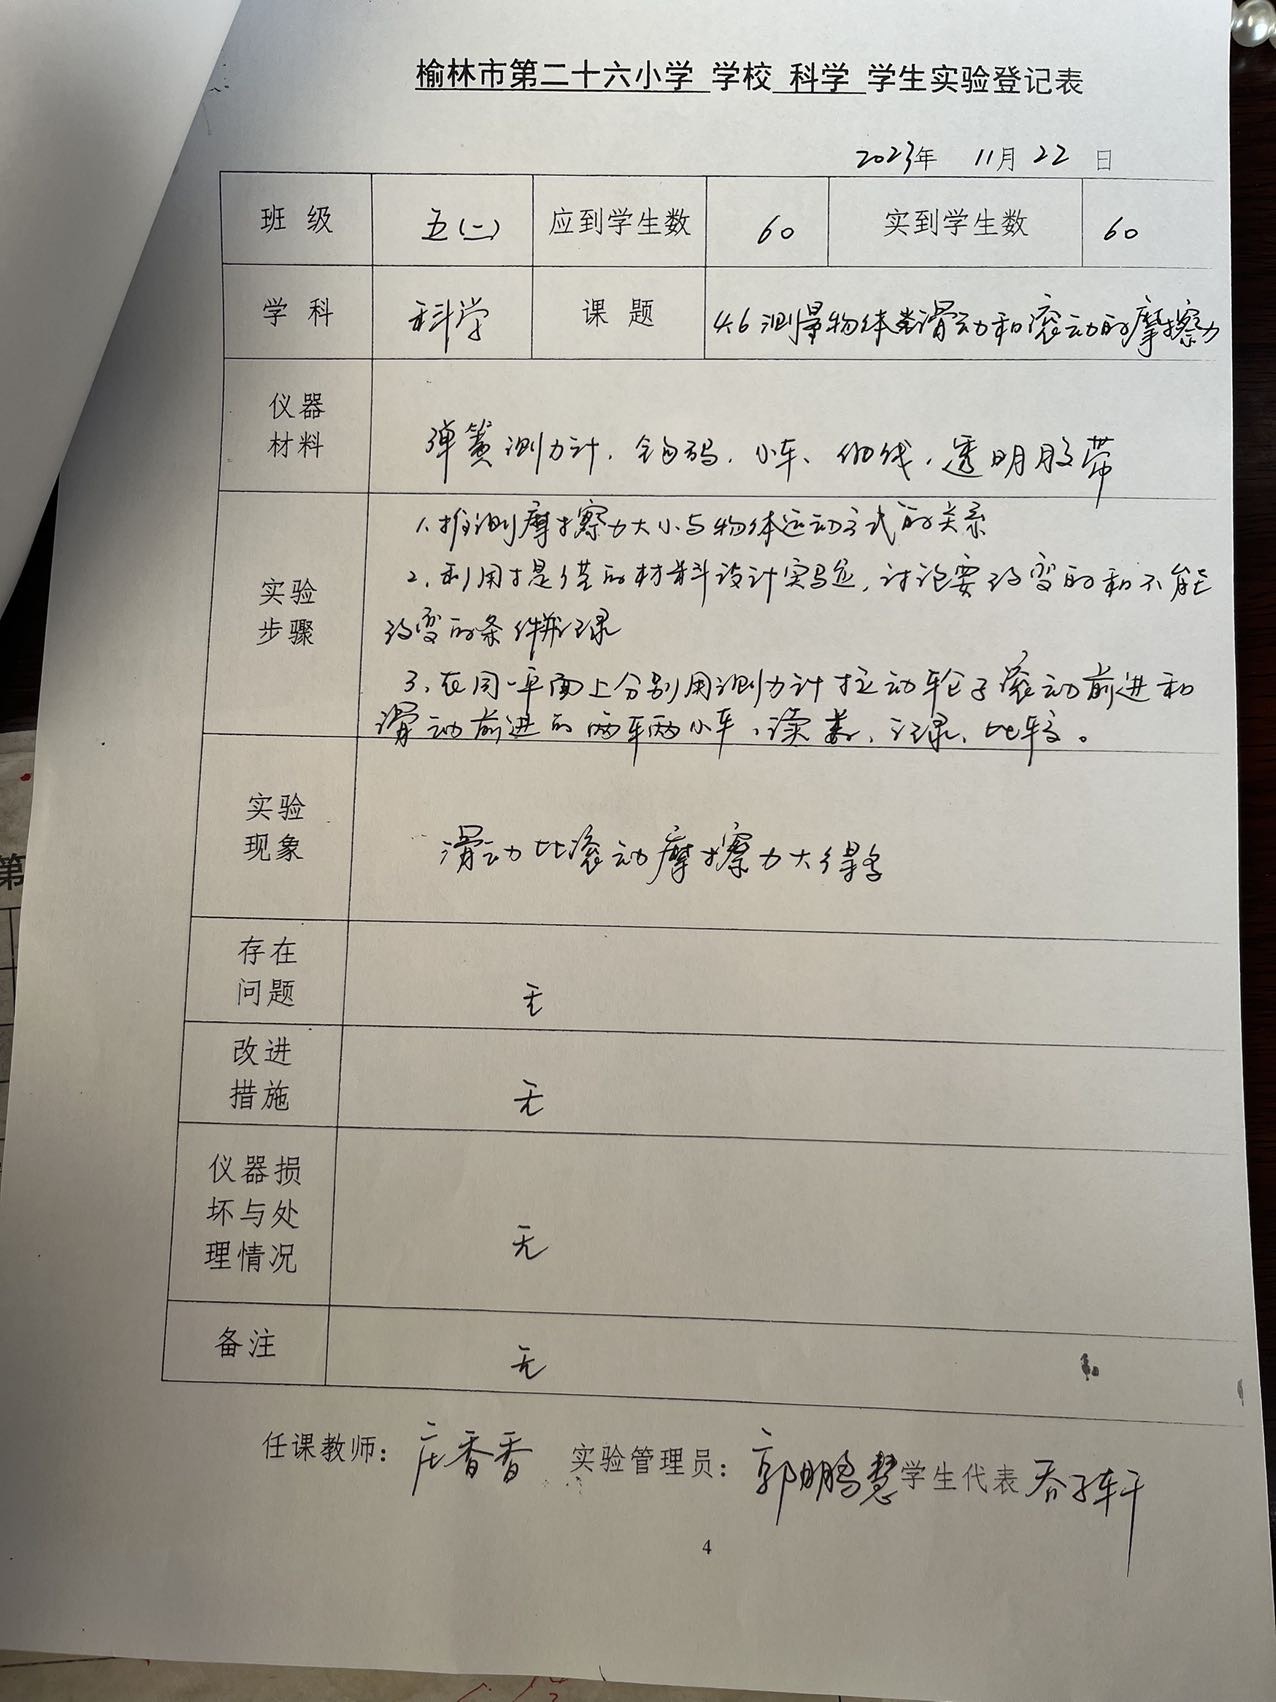 榆林市第二十六小学 学校 科学 学生实验登记表
2023年 11月 22 日
班 级 五(二) 应到学生数 60 实到学生数 60
学 科 科学 课 题 4.6 测量物体滑动和滚动的摩擦力
仪器
材料
弹簧测力计、钩码、小车、细线、透明胶带
实验
步骤
1、推测摩擦力大小与物体运动方式的关系
2、利用提供的材料设计实验,讨论要改变的和不能
改变的条件并记录
3、在同一平面上分别用测力计拉动轮子滚动前进和
滑动前进的两车两小车、读数、记录、比较。
实验
现象
滑动比滚动摩擦力大得多
存在
问题
无
改进
措施
无
仪器损
坏与处
理情况
无
备注
无
任课教师: 庄香香 实验管理员: 郭鹏慧 学生代表 乔子轩
4
第